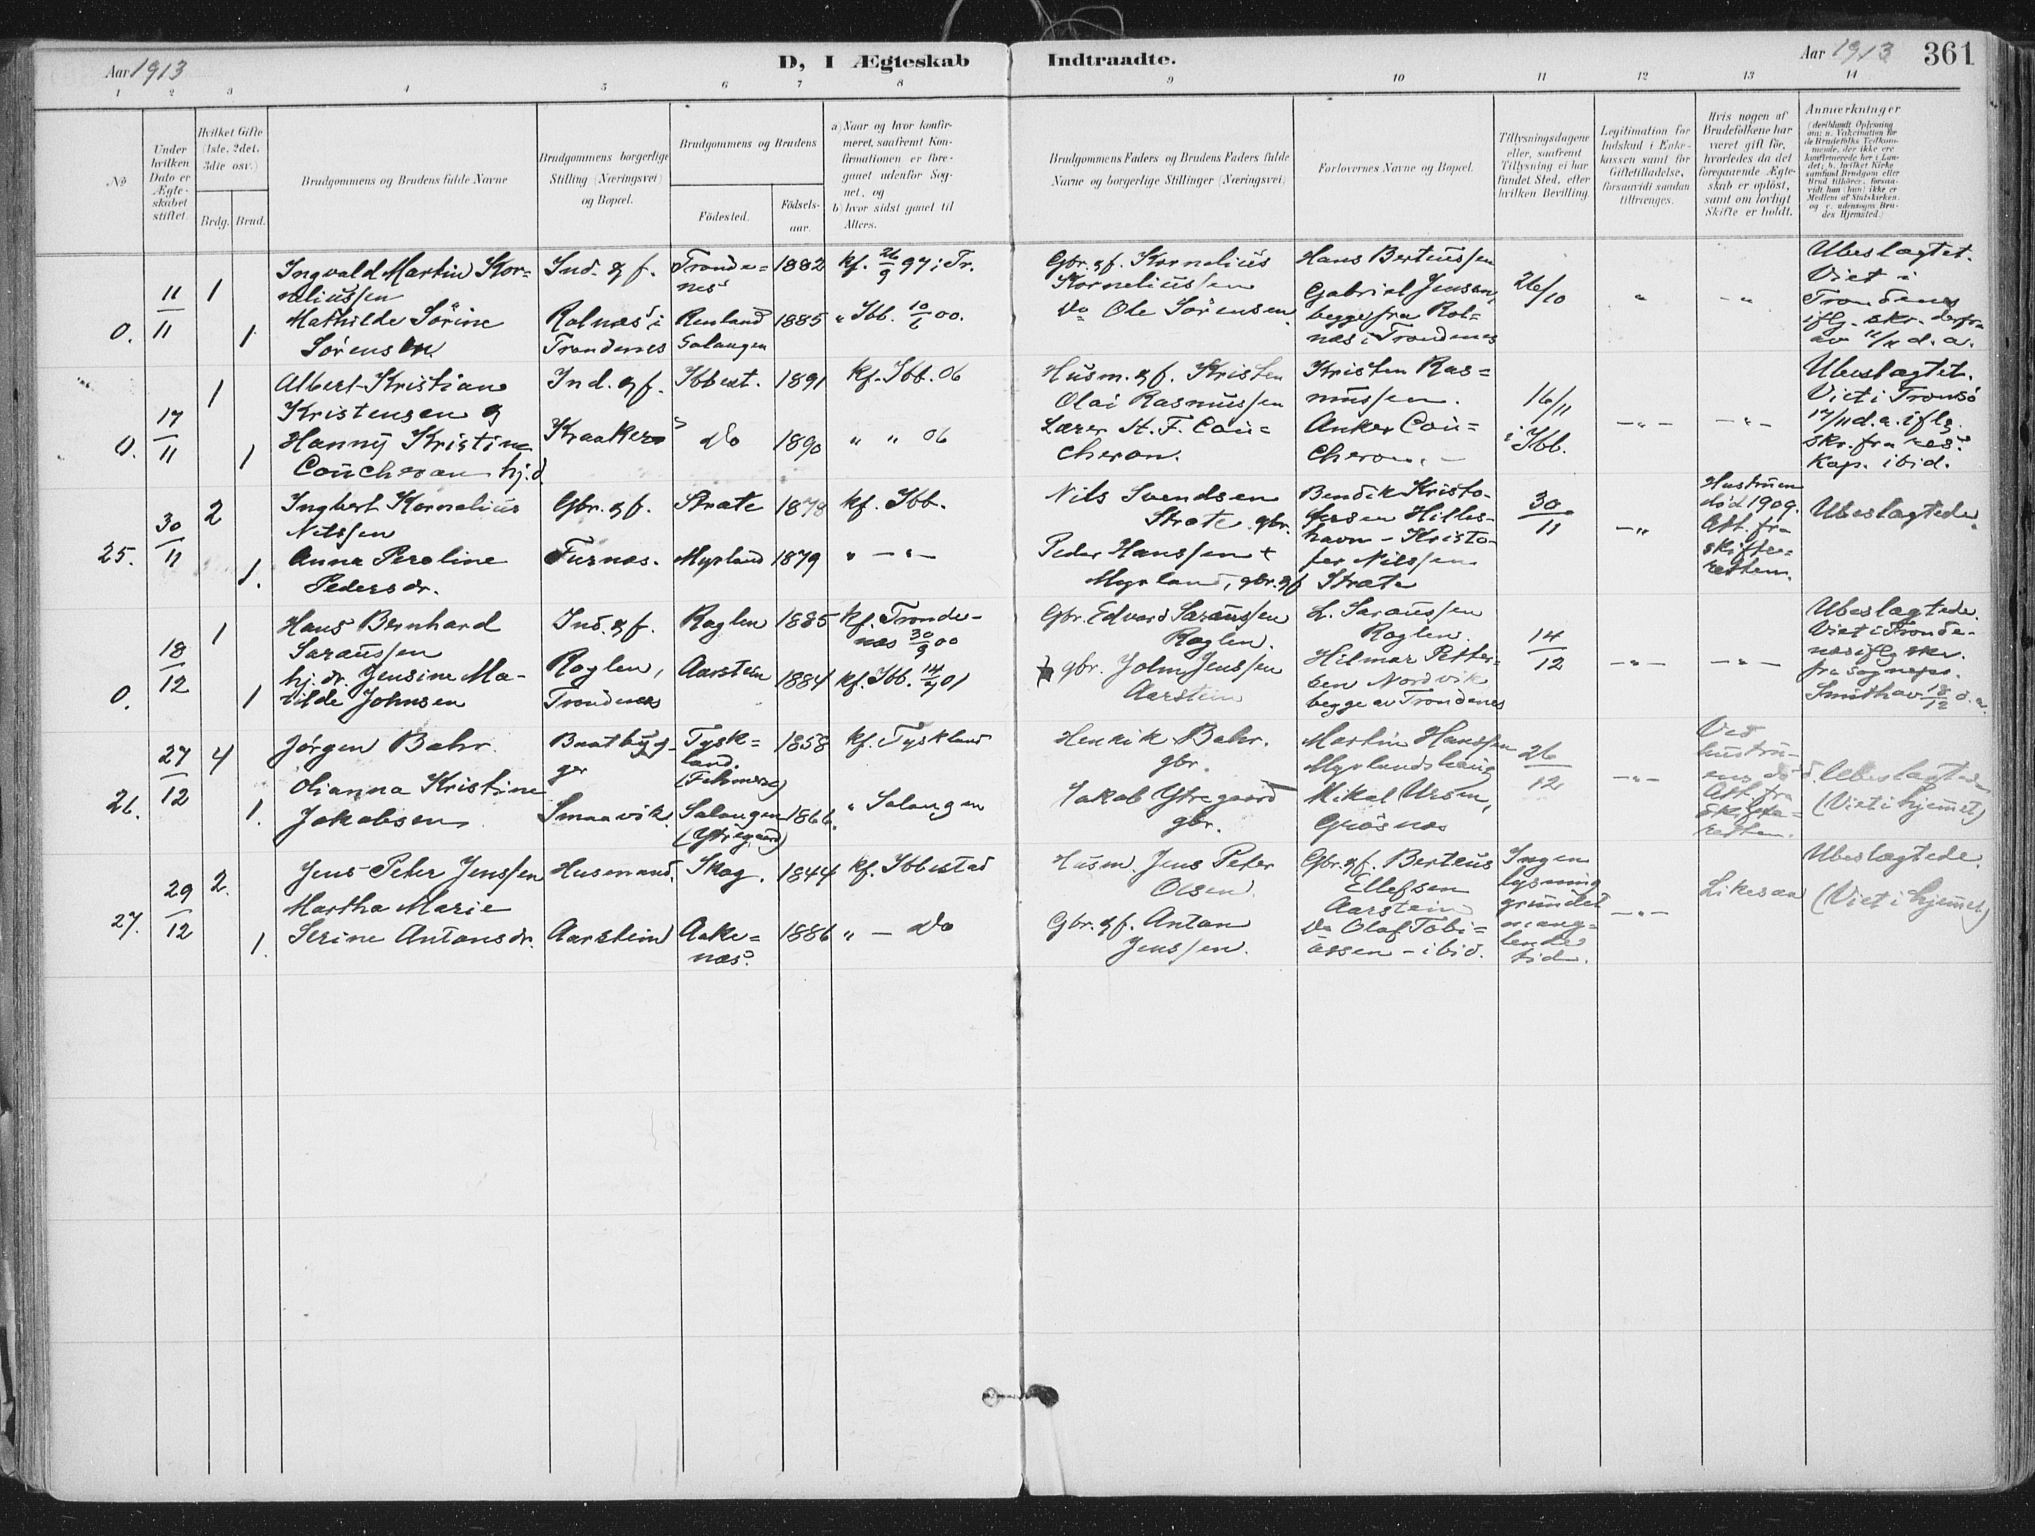 Aar 1913
D, I Ægteskab Indtraadte.
Aar 1913 361
1 2 3 4 5 6 7 8 9 10 11 12 13 14
No
Under hvilken Dato er Ægteskabet stiftet.
Hvilket Gifte (1ste, 2det, 3die osv.)
Brdg. Brud.
Brudgommens og Brudens fulde Navne
Brudgommens borgerlige Stilling (Næringsvei) og Bopæl.
Brudgommens og Brudens
Fødested. Fødsels-aar.
a) Naar og hvor konfirmeret, saafremt Konfirmationen er foregaaet udenfor Sognet, og
b) hvor sidst gaaet til Alters.
Brudgommens Faders og Brudens Faders fulde Navne og borgerlige Stillinger (Næringsvei)
Forlovernes Navne og Bopæl.
Tillysningsdagene eller, saafremt Tillysning ei har fundet Sted, efter hvilken Bevilling.
Legitimation for Indskud i Enkekassen samt for Giftetilladelse, forsaavidt saadan tiltrænges.
Hvis nogen af Brudefolkene har været gift før, hvorledes da det foregaaende Ægteskab er opløst, samt om lovligt Skifte er holdt.
Anmerkninger
0.
11/11
1
Ingvald Martin Kor-
neliussen
Ind. & f.
Tronde-
nes
1882
kf. 26/9 97 i Tr.
1
Mathilde Sörine
Sørensen
Rolnæs i
Trondenes
Renland
Salangen
1885
" Ibb. 10/6 00.
Gbr. & f. Kornelius
Korneliussen
Do Ole Sørensen
Hans Berteussen
Gabriel Jensen,
begge fra Rol-
næs i Trondenes
26/10
"
- " -
Ubeslægtet.
Viet i
Trondenes
iflg. skr. derfra
av 11/11 d. a.
0.
17/11
1
Albert Kristian
Kristensen og
Ind. & f.
Ibbest.
1891
kf. Ibb. 06
1
Hanny Kristine
Coucheron hj. d.
Kraakerø
Do
1890
" " 06
Husm. & f. Kristen
Olai Rasmussen
Lærer St. F. Cou-
cheron.
Kristen Ras-
mussen.
Anker Cou-
cheron. -
16/11
i Ibb.
- " -
- " -
Ubeslægtet.
Viet i Tromsö
17/11 d. a. iflg.
skr. fra res.
kap. ibid.
25.
30/11
2
Ingbert Kornelius
Nilssen
Gbr. & f.
Strate
1878
kf. Ibb.
1.
Anna Peroline
Pedersdr.
Furnæs.
Myrland
1879
" - " -
Nils Svendsen
Strate gbr.
Peder Hanssen +
Myrland, gbr. & f
Bendik Kristo-
fersen Hilles-
havn - Kristo-
fer Nilssen
Strate
30/11
- " -
Hustruen
død 1909.
Att. fra
skifte-
retten.
Ubeslægtede.
0.
18/12
1
Hans Bernhard
Saraussen
Ind. & f.
Roglen
1885
kf. Tronde-
næs 30/9 00
1
hj. dr. Jensine Ma-
tilde Johnsen
Roglen,
Trondenes
Aarstein
1884
kf. Ibb. 14/7 01
Gbr. Edvard Saraussen
Roglen.
gbr. John Jenssen
Aarstein
L. Saraussen
Roglen.
Hilmar Petter-
sen Nordvik
begge av Trondenes
14/12
- " -
- " -
Ubeslægtede.
Viet i Tronde-
næs iflg skr.
fra sognepr.
Smith av 18/12 d. a.
26.
27/12
4
Jørgen Bahr.
Baatbyg-
ger
Tysk-
land.
(Fehmern)
1858
kf. Tyskland
1.
Olianna Kristine
Jakobsen
Smaavik.
Salangen
(Ytregaard)
1866.
" Salangen
Henrik Bahr.
gbr.
Jakob Ytregaard
gbr.
Martin Hanssen
Myrlandshaug
Mikal Ursin,
Grøsnæs
26/12
- " -
Ved
hustru-
ens død
Att. fra
skifte-
retten.
Ubeslægtede
(Viet i hjemmet)
27.
29/12
2.
Jens-Peter Jenssen
Husmand.
Skog.
1844
kf. Ibbestad
1.
Martha Marie
Serine Antonsdr.
Aarstein
Aake-
næs.
1886
" - Do
Husm. Jens Peter
Olsen.
Gbr. & f. Anton
Jenssen.
Gbr. & f. Berteus
Ellefsen
Aarstein
Do Olaf Tobi-
assen - ibid.
Ingen
lysning
grundet
mang-
lende
tid.
- " -
Likesaa
Ubeslægtede.
(Viet i hjemmet)